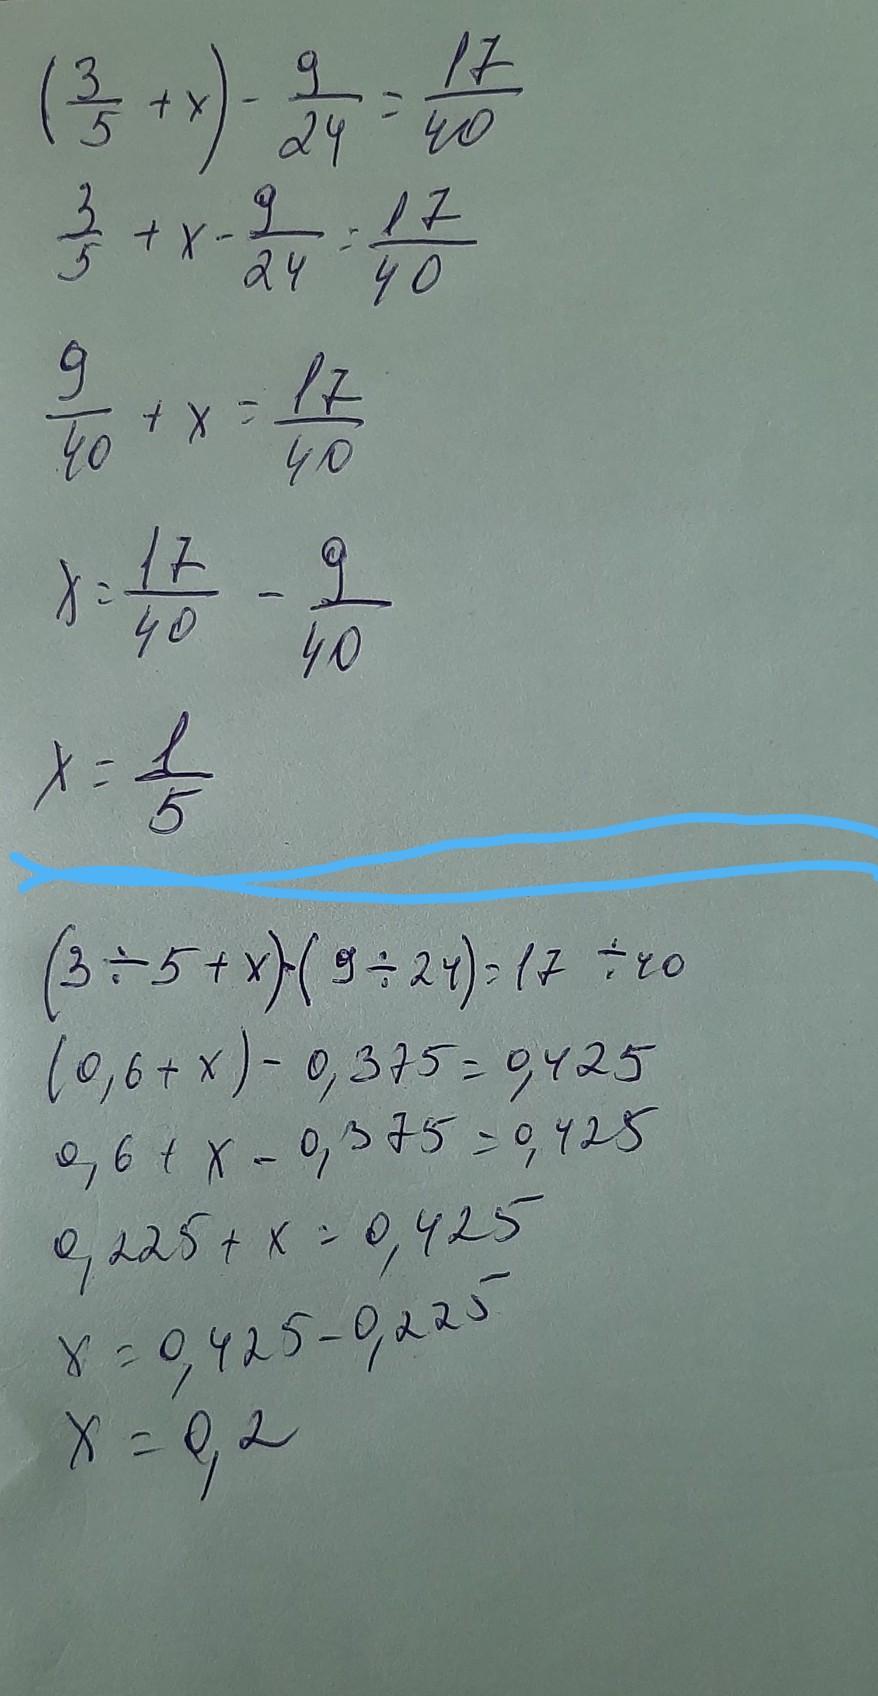 (3/5 + x) - 9/24 = 17/40
3/5 + x - 9/24 = 17/40
9/40 + x = 17/40
x = 17/40 - 9/40
x = 1/5
(3÷5+x)-(9÷24)=17÷40
(0,6+x)-0,375=0,425
0,6+x-0,375=0,425
0,225+x=0,425
x=0,425-0,225
x=0,2